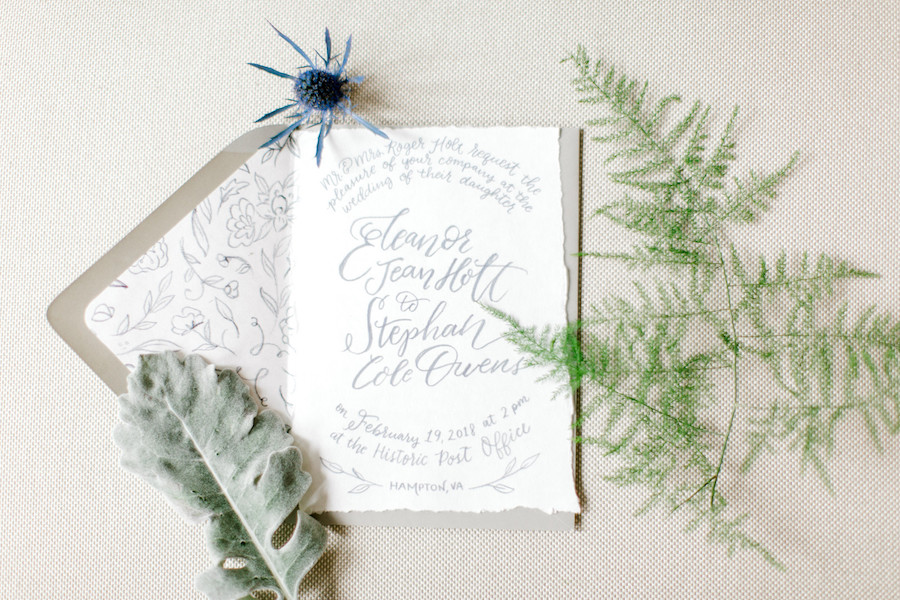 Mr & Mrs. Roger Holt request the
pleasure of your company at the
wedding of their daughter
Eleanor
Jean Holt
to
Stephan
Cole Owens
on February 19, 2018 at 2 pm
at the Historic Post Office
HAMPTON, VA